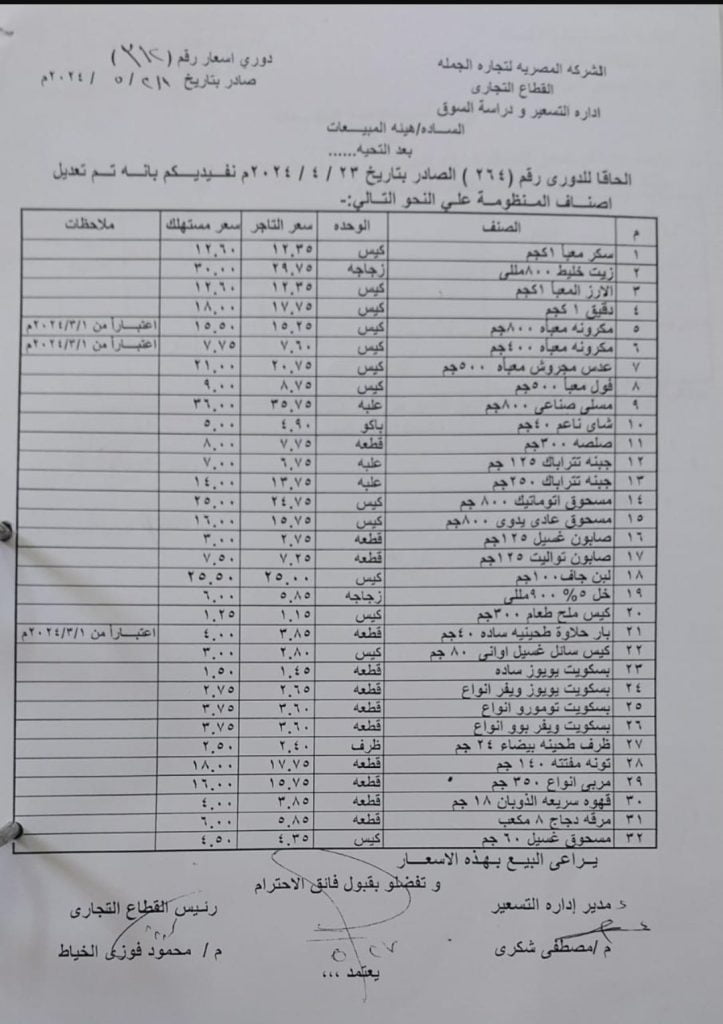 الشركه المصريه لتجاره الجمله
القطاع التجارى
اداره التسعير و دراسة السوق
دوري اسعار رقم (٣١٢)
صادر بتاريخ / ٥ / ٢٠٢٤م
الساده/هيئه المبيعات
بعد التحيه......
الحاقا للدورى رقم (٢٦٤) الصادر بتاريخ ٢٣ / ٤ / ٢٠٢٤م نفيديكم بانه تم تعديل
اصناف المنظومة علي النحو التالي:-
م الصنف الوحده سعر التاجر سعر مستهلك ملاحظات
١ سكر معبأ ١كجم كيس ١٢,٣٥ ١٢,٦٠
٢ زيت خليط ٨٠٠مللى زجاجه ٢٩,٧٥ ٣٠,٠٠
٣ الارز المعبأ ١كجم كيس ١٢,٣٥ ١٢,٦٠
٤ دقيق ١ كجم كيس ١٧,٧٥ ١٨,٠٠
٥ مكرونه معبأه ٨٠٠جم كيس ١٥,٢٥ ١٥,٥٠ اعتباراً من ٢٠٢٤/٣/١م
٦ مكرونه معبأه ٤٠٠جم كيس ٧,٦٠ ٧,٧٥ اعتباراً من ٢٠٢٤/٣/١م
٧ عدس مجروش معبأه ٥٠٠جم كيس ٢٠,٧٥ ٢١,٠٠
٨ فول معبأ ٥٠٠جم كيس ٨,٧٥ ٩,٠٠
٩ مسلى صناعى ٨٠٠جم علبه ٣٥,٧٥ ٣٦,٠٠
١٠ شاى ناعم ٤٠جم باكو ٤,٩٠ ٥,٠٠
١١ صلصه ٣٠٠جم قطعه ٧,٧٥ ٨,٠٠
١٢ جبنه تتراباك ١٢٥ جم علبه ٦,٧٥ ٧,٠٠
١٣ جبنه تتراباك ٢٥٠جم علبه ١٣,٧٥ ١٤,٠٠
١٤ مسحوق اتوماتيك ٨٠٠ جم كيس ٢٤,٧٥ ٢٥,٠٠
١٥ مسحوق عادى يدوى ٨٠٠جم كيس ١٥,٧٥ ١٦,٠٠
١٦ صابون غسيل ١٢٥جم قطعه ٢,٧٥ ٣,٠٠
١٧ صابون تواليت ١٢٥جم قطعه ٧,٢٥ ٧,٥٠
١٨ لبن جاف١٠٠جم كيس ٢٥,٠٠ ٢٥,٥٠
١٩ خل ٥% ٩٠٠مللى زجاجه ٥,٨٥ ٦,٠٠
٢٠ كيس ملح طعام ٣٠٠جم كيس ١,١٥ ١,٢٥
٢١ بار حلاوة طحينيه ساده ٤٠جم قطعه ٣,٨٥ ٤,٠٠ اعتباراً من ٢٠٢٤/٣/١م
٢٢ كيس سائل غسيل اوانى ٨٠ جم كيس ٢,٨٠ ٣,٠٠
٢٣ بسكويت يويوز ساده قطعه ١,٤٥ ١,٥٠
٢٤ بسكويت يويوز ويفر انواع قطعه ٢,٦٥ ٢,٧٥
٢٥ بسكويت تومورو انواع قطعه ٣,٦٠ ٣,٧٥
٢٦ بسكويت ويفر بوو انواع قطعه ٣,٦٠ ٣,٧٥
٢٧ ظرف طحينه بيضاء ٢٤ جم ظرف ٢,٤٠ ٢,٥٠
٢٨ تونه مفتته ١٤٠ جم قطعه ١٧,٧٥ ١٨,٠٠
٢٩ مربى انواع ٣٥٠ جم قطعه ١٥,٧٥ ١٦,٠٠
٣٠ قهوه سريعه الذوبان ١٨ جم قطعه ٣,٨٥ ٤,٠٠
٣١ مرقه دجاج ٨ مكعب قطعه ٥,٨٥ ٦,٠٠
٣٢ مسحوق غسيل ٦٠ جم كيس ٤,٣٥ ٤,٥٠
يراعى البيع بهذه الاسعار
و تفضلو بقبول فائق الاحترام
مدير إداره التسعير
رئيس القطاع التجارى
م /مصطفى شكرى
م / محمود فوزى الخياط
يعتمد ,,,